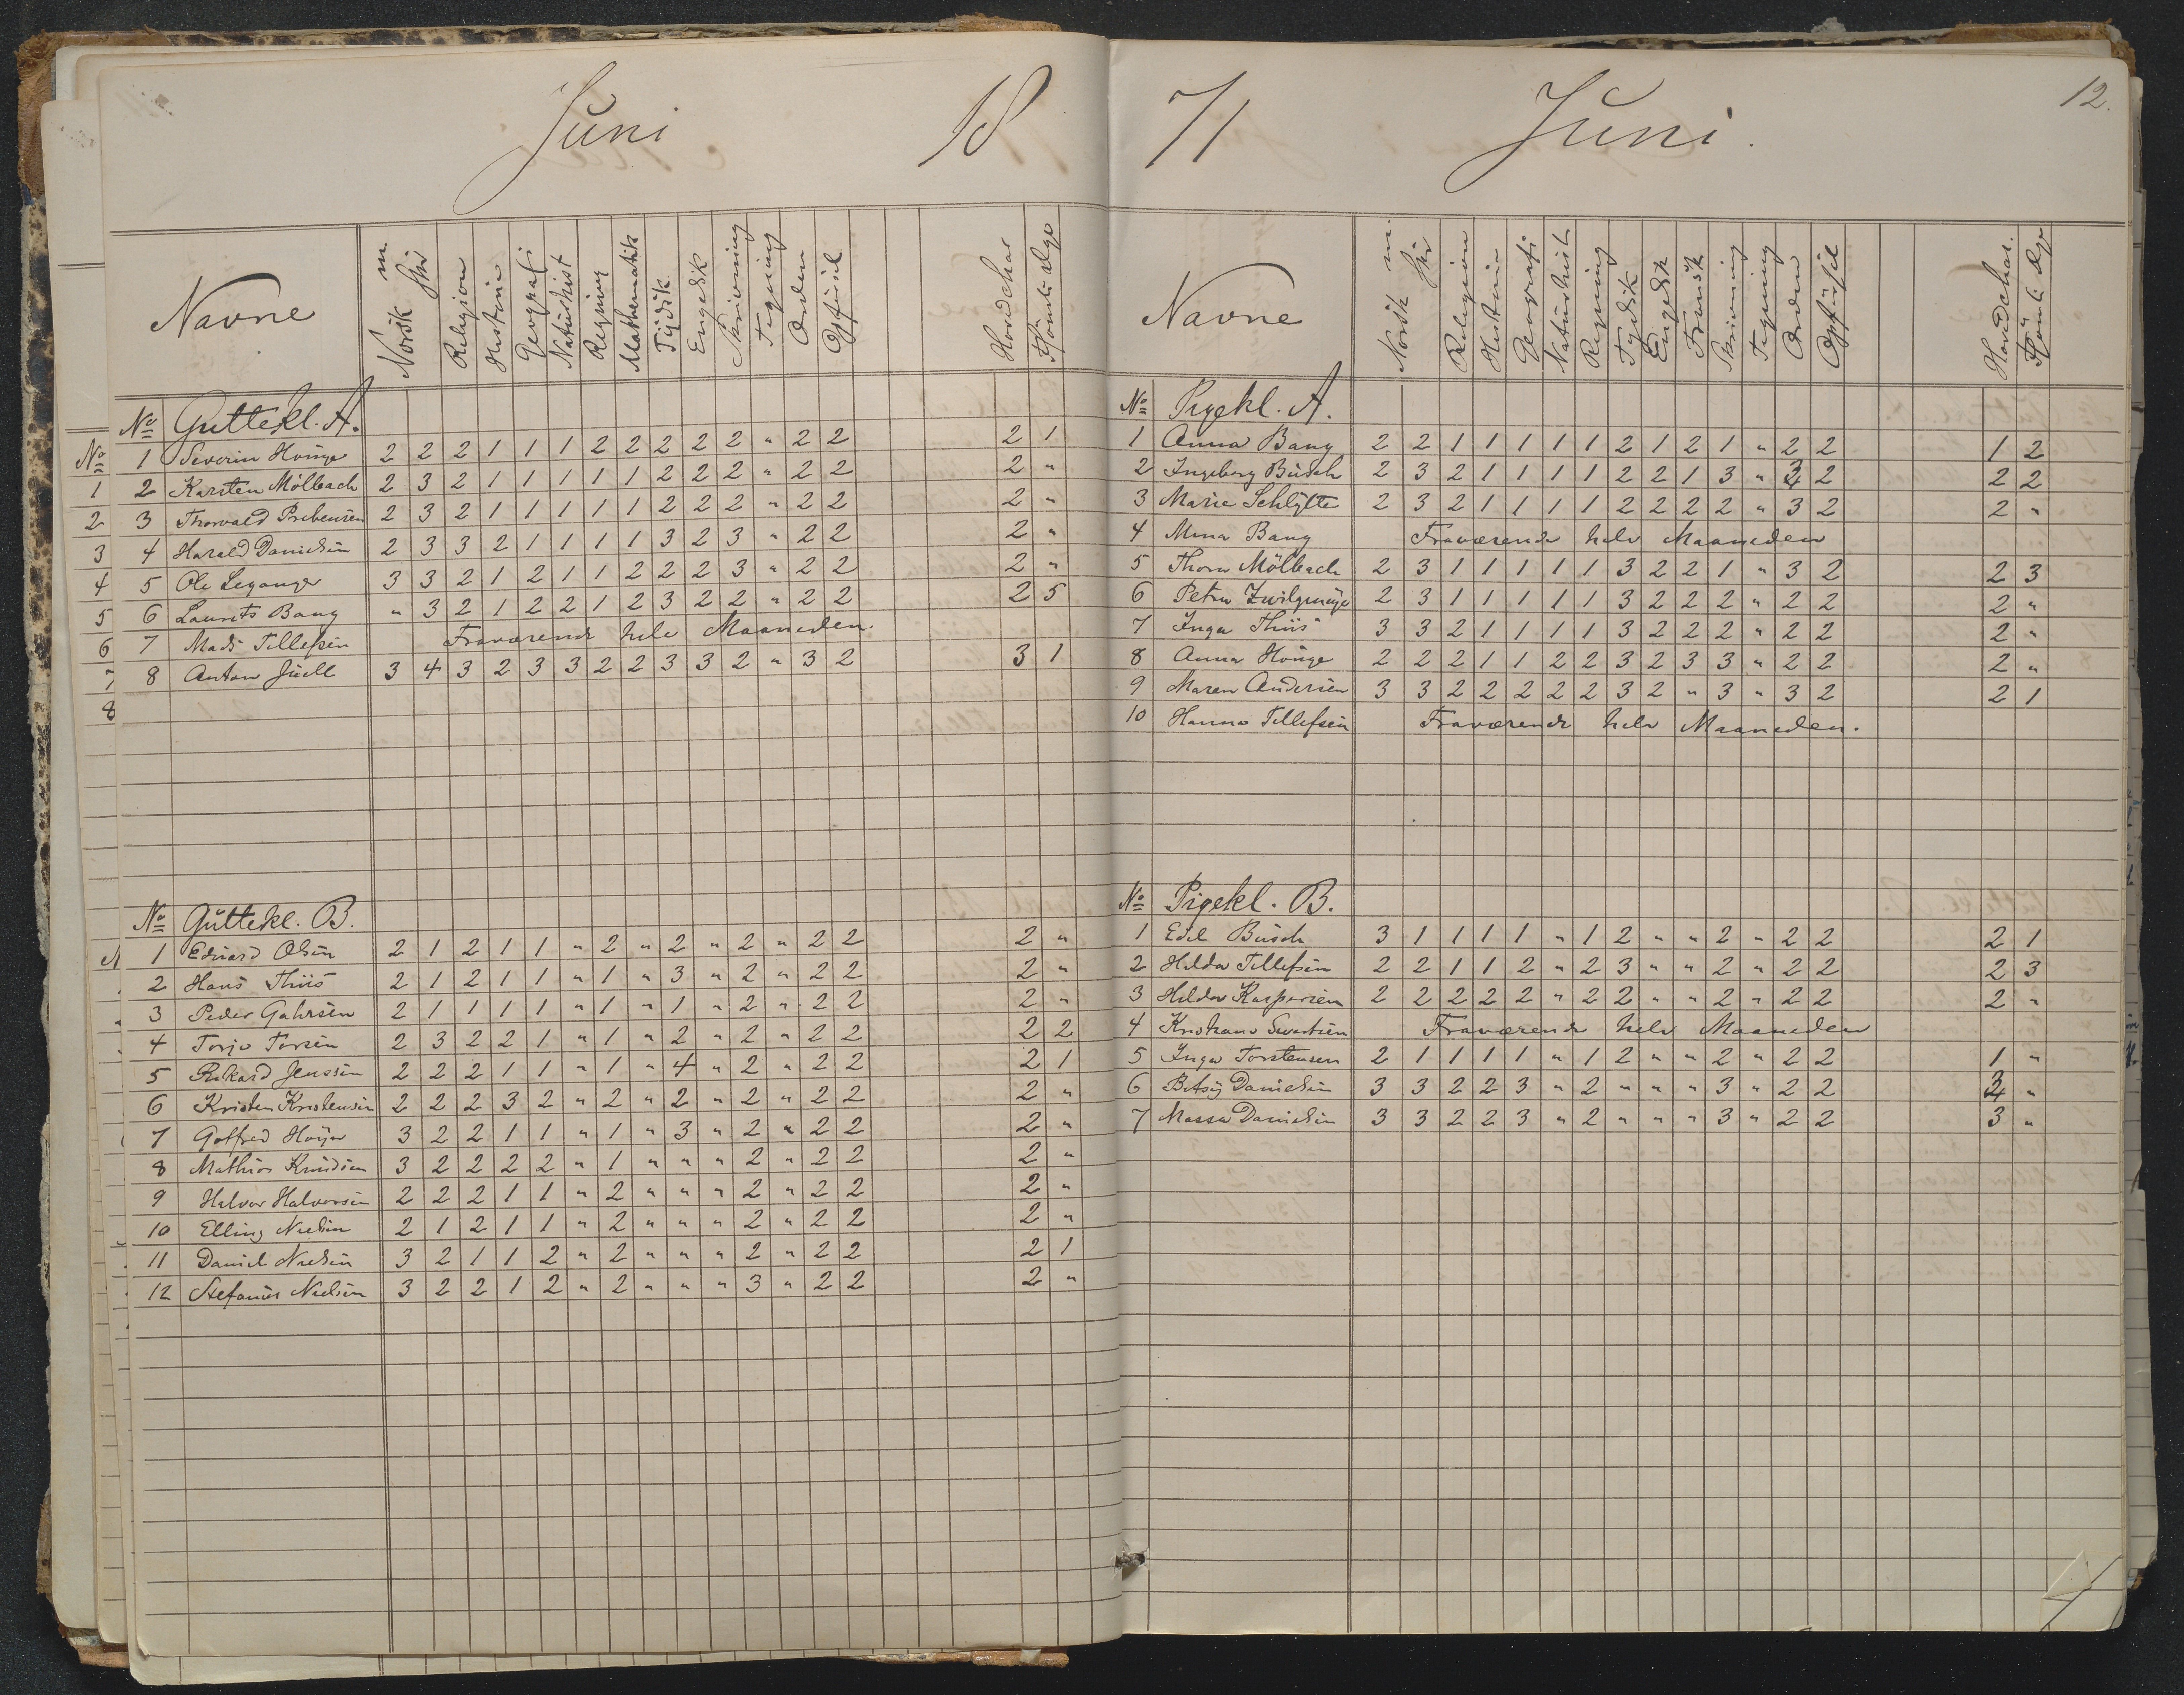 Juni 18
Navne Norsk m skr Religion Historie Geografi Naturhist Regning Mathematik Tydsk Engelsk Skrivning Tegning Orden Opførsel Hovedchar Forsømte Dge
No Guttekl. A.
1 Severin Houge 2 2 2 1 1 1 2 2 2 2 2 " 2 2 2 1
2 Karsten Mölbach 2 3 2 1 1 1 1 1 2 2 2 " 2 2 2 "
3 Thorvald Prebensen 2 3 2 1 1 1 1 1 2 2 2 " 2 2 2 "
4 Harald Danielsen 2 3 3 2 1 1 1 1 3 2 3 " 2 2 2 "
5 Ole Leganger 3 3 2 1 2 1 1 2 2 2 3 " 2 2 2 "
6 Laurits Bang " 3 2 1 2 2 1 2 3 2 2 " 2 2 2 5
7 Mads Tellefsen Fraværende hele Maaneden.
8 Anton Juell 3 4 3 2 3 3 2 2 3 3 2 " 3 2 3 1
No Guttekl. B.
1 Edvard Olsen 2 1 2 1 1 " 2 " 2 " 2 " 2 2 2 "
2 Hans Thiis 2 1 2 1 1 " 1 " 3 " 2 " 2 2 2 "
3 Peder Gahrsen 2 1 1 1 1 " 1 " 1 " 2 " 2 2 2 "
4 Torjo Torsen 2 3 2 2 1 " 1 " 2 " 2 " 2 2 2 2
5 Rikard Jenssen 2 2 2 1 1 " 1 " 4 " 2 " 2 2 2 1
6 Kristen Kristensen 2 2 2 3 2 " 2 " 2 " 2 " 2 2 2 "
7 Gotfred Höyer 3 2 2 1 1 " 1 " 3 " 2 " 2 2 2 "
8 Mathias Knudsen 3 2 2 2 2 " 1 " " " 2 " 2 2 2 "
9 Halvor Halvorsen 2 2 2 1 1 " 2 " " " 2 " 2 2 2 "
10 Elling Nielsen 2 1 2 1 1 " 2 " " " 2 " 2 2 2 "
11 Daniel Nielsen 3 2 1 1 2 " 2 " " " 2 " 2 2 2 1
12 Stefanus Nielsen 3 2 2 1 2 " 2 " " " 3 " 2 2 2 "
71 Juni. 12.
Navne Norsk m skr Religion Historie Geografi Naturhist Regning Tydsk Engelsk Fransk Skrivning Tegning Orden Opførsel Hovedchar. Forsömte Dge
No Pigekl. A.
1 Anna Bang 2 2 1 1 1 1 1 2 1 2 1 " 2 2 1 2
2 Ingeborg Busch 2 3 2 1 1 1 1 2 2 1 3 " 3 2 2 2
3 Marie Schlytte 2 3 2 1 1 1 1 2 2 2 2 " 3 2 2 "
4 Mina Bang Fraværende hele Maaneden
5 Thora Mölbach 2 3 1 1 1 1 1 3 2 2 1 " 3 2 2 3
6 Petra Zwilgmeyer 2 3 1 1 1 1 1 3 2 2 2 " 2 2 2 "
7 Inga Thiis 3 3 2 1 1 1 1 3 2 2 2 " 2 2 2 "
8 Anna Houge 2 2 2 1 1 2 2 3 2 3 3 " 2 2 2 "
9 Maren Andersen 3 3 2 2 2 2 2 3 2 " 3 " 3 2 2 1
10 Hanna Tellefsen Fraværende hele Maaneden.
No Pigekl. B.
1 Edel Busch 3 1 1 1 1 " 1 2 " " 2 " 2 2 2 1
2 Helda Tellefsen 2 2 1 1 2 " 2 3 " " 2 " 2 2 2 3
3 Helda Kaspersen 2 2 2 2 2 " 2 2 " " 2 " 2 2 2 "
4 Kristiane Fraværende hele Maaneden
5 Inga Torstensen 2 1 1 1 1 " 1 2 " " 2 " 2 2 1 "
6 Betsy Danielsen 3 3 2 2 3 " 2 " " " 3 " 2 2 3 "
7 Massa Danielsen 3 3 2 2 3 " 2 " " " 3 " 2 2 3 "
No
1
2
3
4
5
6
7
8